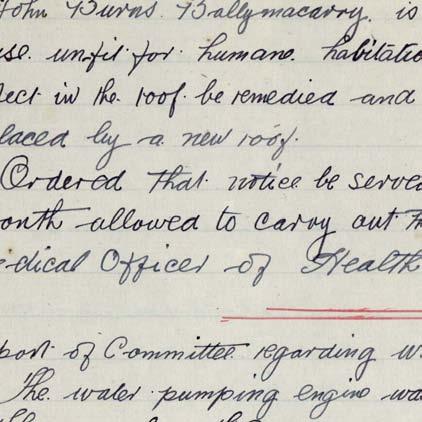 John Burns. Ballymacarry. is
use. unfit for humane. habitatio
fect in the. roof. be remedied and
placed by a new roof.
Ordered that notice be served
onth allowed to carry out th
edical Officer of Health
port of Committee regarding w
The. water pumping engine wa